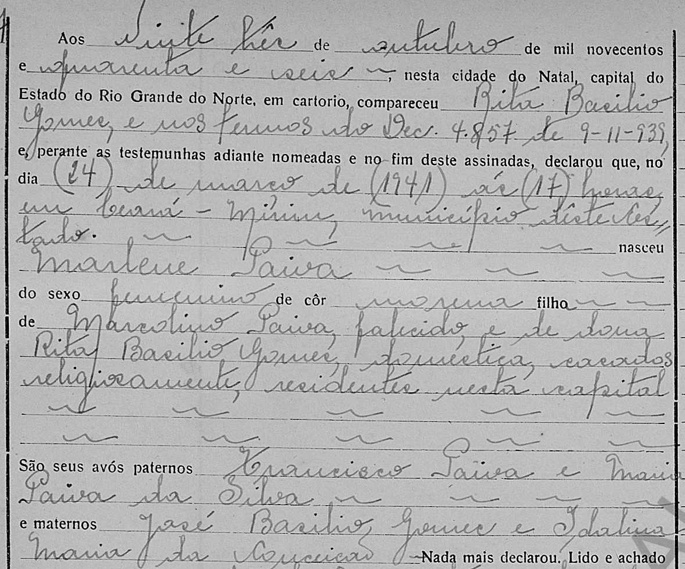 Aos vinte três de outubro de mil novecentos
e quarenta e seis, nesta cidade do Natal, capital do
Estado do Rio Grande do Norte, em cartorio, compareceu Rita Basilio
Gomes, e nos termos do Dec. 4.857 de 9-11-939,
e, perante as testemunhas adiante nomeadas e no fim deste assinadas, declarou que, no
dia (24) de março de (1941) ás (17) horas,
em Ceará-Mirim, município dêste Es,,
tado. nasceu
Marlene Paiva
do sexo feminino de côr morena filha
de Marcolino Paiva, falecido, e de dona
Rita Basilio Gomes, domestica, casados
religiosamente, residentes nesta capital
São seus avós paternos Francisco Paiva e Maria
Paiva da Silva
e maternos José Basilio Gomes e Idalina
Maria da Conceicão Nada mais declarou. Lido e achado